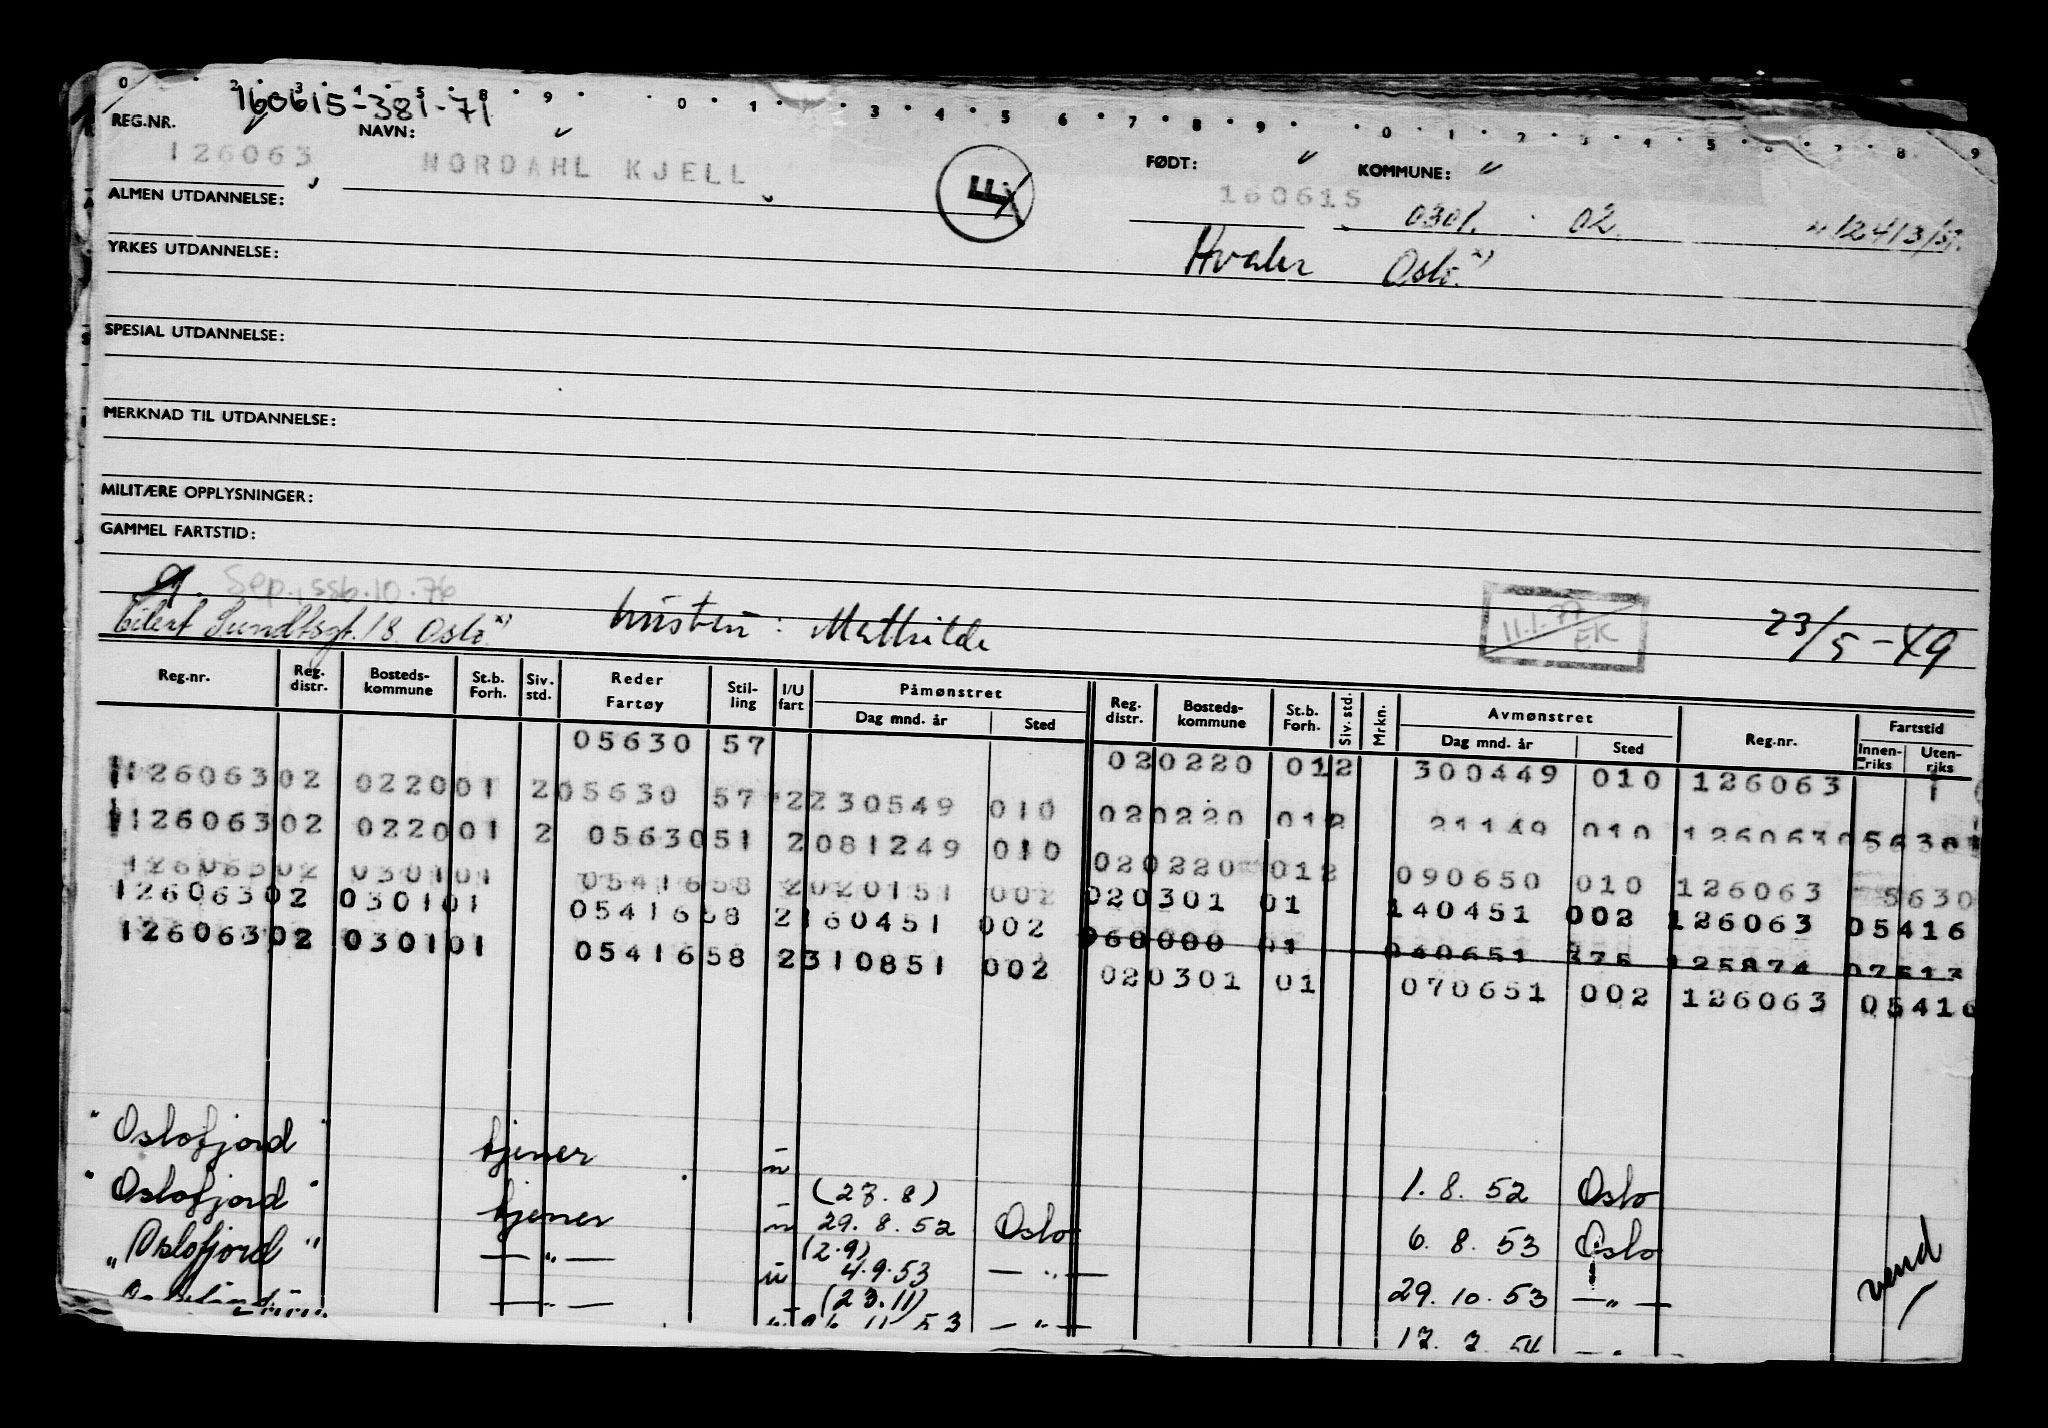 0 2 3 4 5 8 9 0 1 3 4 5 6 7 8 9 0 1 2 3 4 5 6 7 8 9
160615-381-71
REG.NR. NAVN: FØDT: KOMMUNE:
126063 NORDAHL KJELL LL 160615 0301. 02 12413/51.
ALMEN UTDANNELSE:
Hvaler Oslo. x)
YRKES UTDANNELSE:
SPESIAL UTDANNELSE:
MERKNAD TIL UTDANNELSE:
MILITÆRE OPPLYSNINGER:
GAMMEL FARTSTID:
g. Sep., ssb.10.76
Eilert Sundtsgt. 18 Oslo x) hustru: Mathilde 11.1.77 EK 23/5-49
Reg.nr. Reg. distr. Bosteds-kommune St.b. Forh. Siv. std. Reder Fartøy Stil-ling I/U fart Påmønstret Dag mnd. år Sted Reg. distr. Bosteds-kommune St.b. Forh. Siv. std. Mrkn. Avmønstret Dag mnd. år Sted Reg.nr. Fartstid Innen-riks Uten-riks
05630 57 020220 012 300449 010 126063
12606302 022001 2 05630 57 2 230549 010 020220 012 21149 010 126063 05630
12606302 022001 2 05630 51 2 081249 010 020220 012 090650 010 126063 5630
12606302 030101 05416 58 2 020151 002 020301 01 140451 002 126063 05416
12606302 030101 05416 58 2 160451 002 060000 01 040651 375 125874 07513
12606302 030101 05416 58 2 310851 002 020301 01 070651 002 126063 05416
"Oslofjord" tjener u 1.8.52 Oslo
(27.8)
"Oslofjord" tjener u 29.8.52 Oslo 6.8.53 Oslo
(2.9)
"Oslofjord" — " — u 4.9.53 — " — 29.10.53 — " —
(23.11)
— " — 11 53 — " — 54 — " —
vend